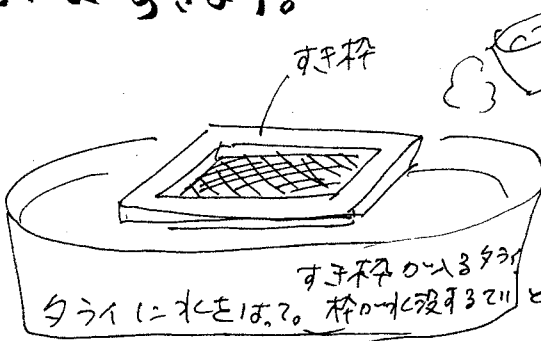 すきます。
すき枠
すき枠が入るタライ
タライに水をはって。枠が水没するていど